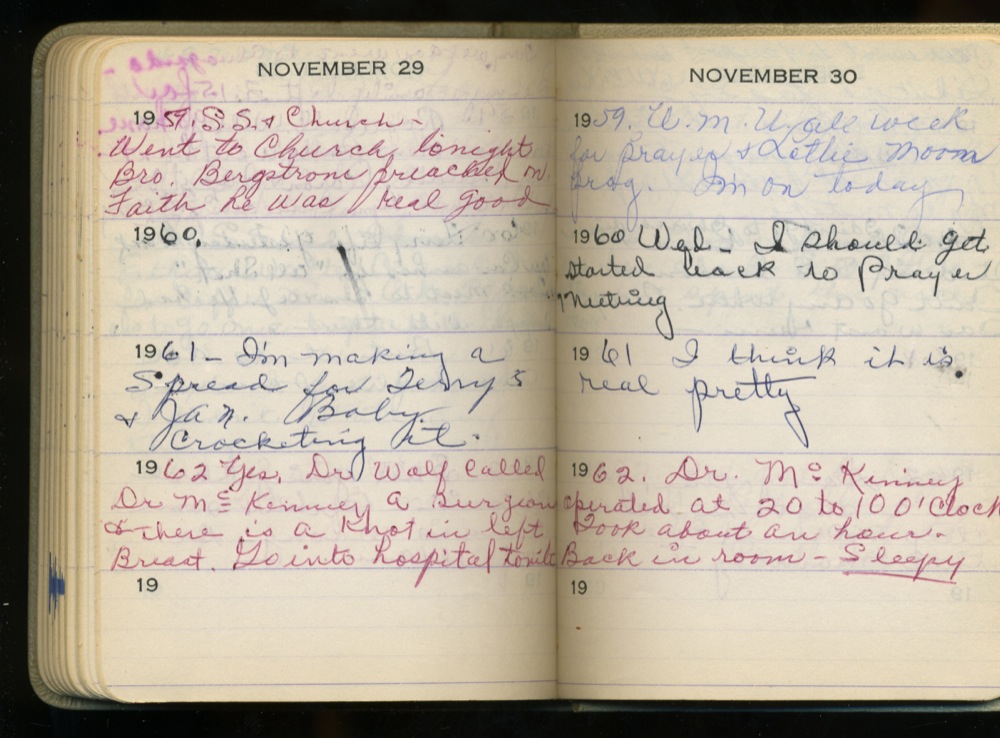 NOVEMBER 29
1959. S.S. & Church -
Went to Church tonight
Bro. Bergstrom preached on
Faith he was real good
1960.
1961 - I'm making a
Spread for Terry's
& Jan. Baby
Crocketing it.
1962 Yes, Dr. Wolf called
Dr Mc Kenney a Surgeon
& there is a Knot in left
Breast. Go into hospital tonite
19
NOVEMBER 30
1959. W.M.U. all week
for prayer & Lottie Moon
prog. I'm on today
1960 Wed. I should get
started back to Prayer
Meeting
1961 I think it is
real pretty
1962. Dr. Mc Kinney
operated at 20 to 10 O'Clock
Took about an hour.
Back in room - Sleepy
19